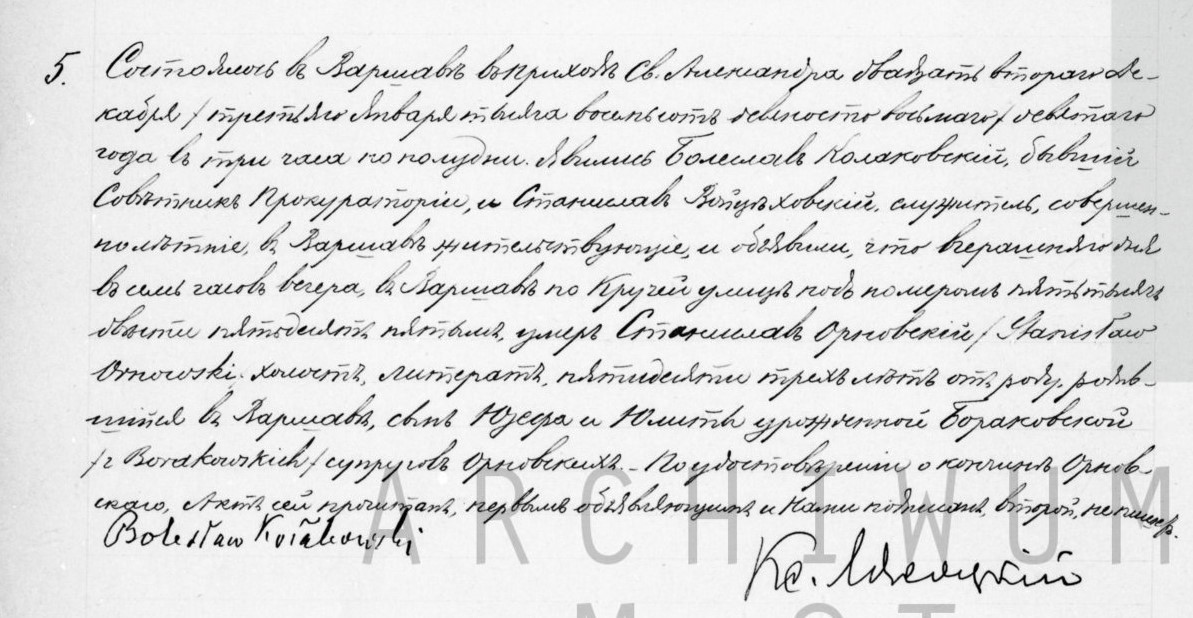 5. Состоялось въ Варшавѣ въ приходѣ Св. Александра двадцать втораго Де-
кабря /третьяго Января тысяча восемьсотъ девяносто восьмаго/ девятаго
года въ три часа по полудни. Явились Болеслав Колаковскій, бывшій
Совѣтникъ Прокураторіи, и Станиславъ Войцѣховскій, служитель, совершен-
нолѣтніе, въ Варшавѣ жительствующіе, и объявили, что вчерашняго дня
въ семь часовъ вечера, въ Варшавѣ по Кручей улицѣ подъ номеромъ пять тысячъ
двѣсти пятьдесятъ пятымъ, умеръ Станиславъ Орновскій /Stanisław
Ornowski, холостъ, литератъ, пятидесяти трехъ лѣтъ отъ роду, родив-
шійся въ Варшавѣ, сынъ Юзефа и Юлиты урожденной Бораковской
/z Borakowskich/ супруговъ Орновскихъ. - По удостовѣреніи о кончинѣ Орнов-
скаго, Актъ сей прочитанъ, первымъ объявляющимъ и Нами подписанъ, второй, не пишер.
Bolesław Kołakowski
Кс.
ARCHIWUM
M ST